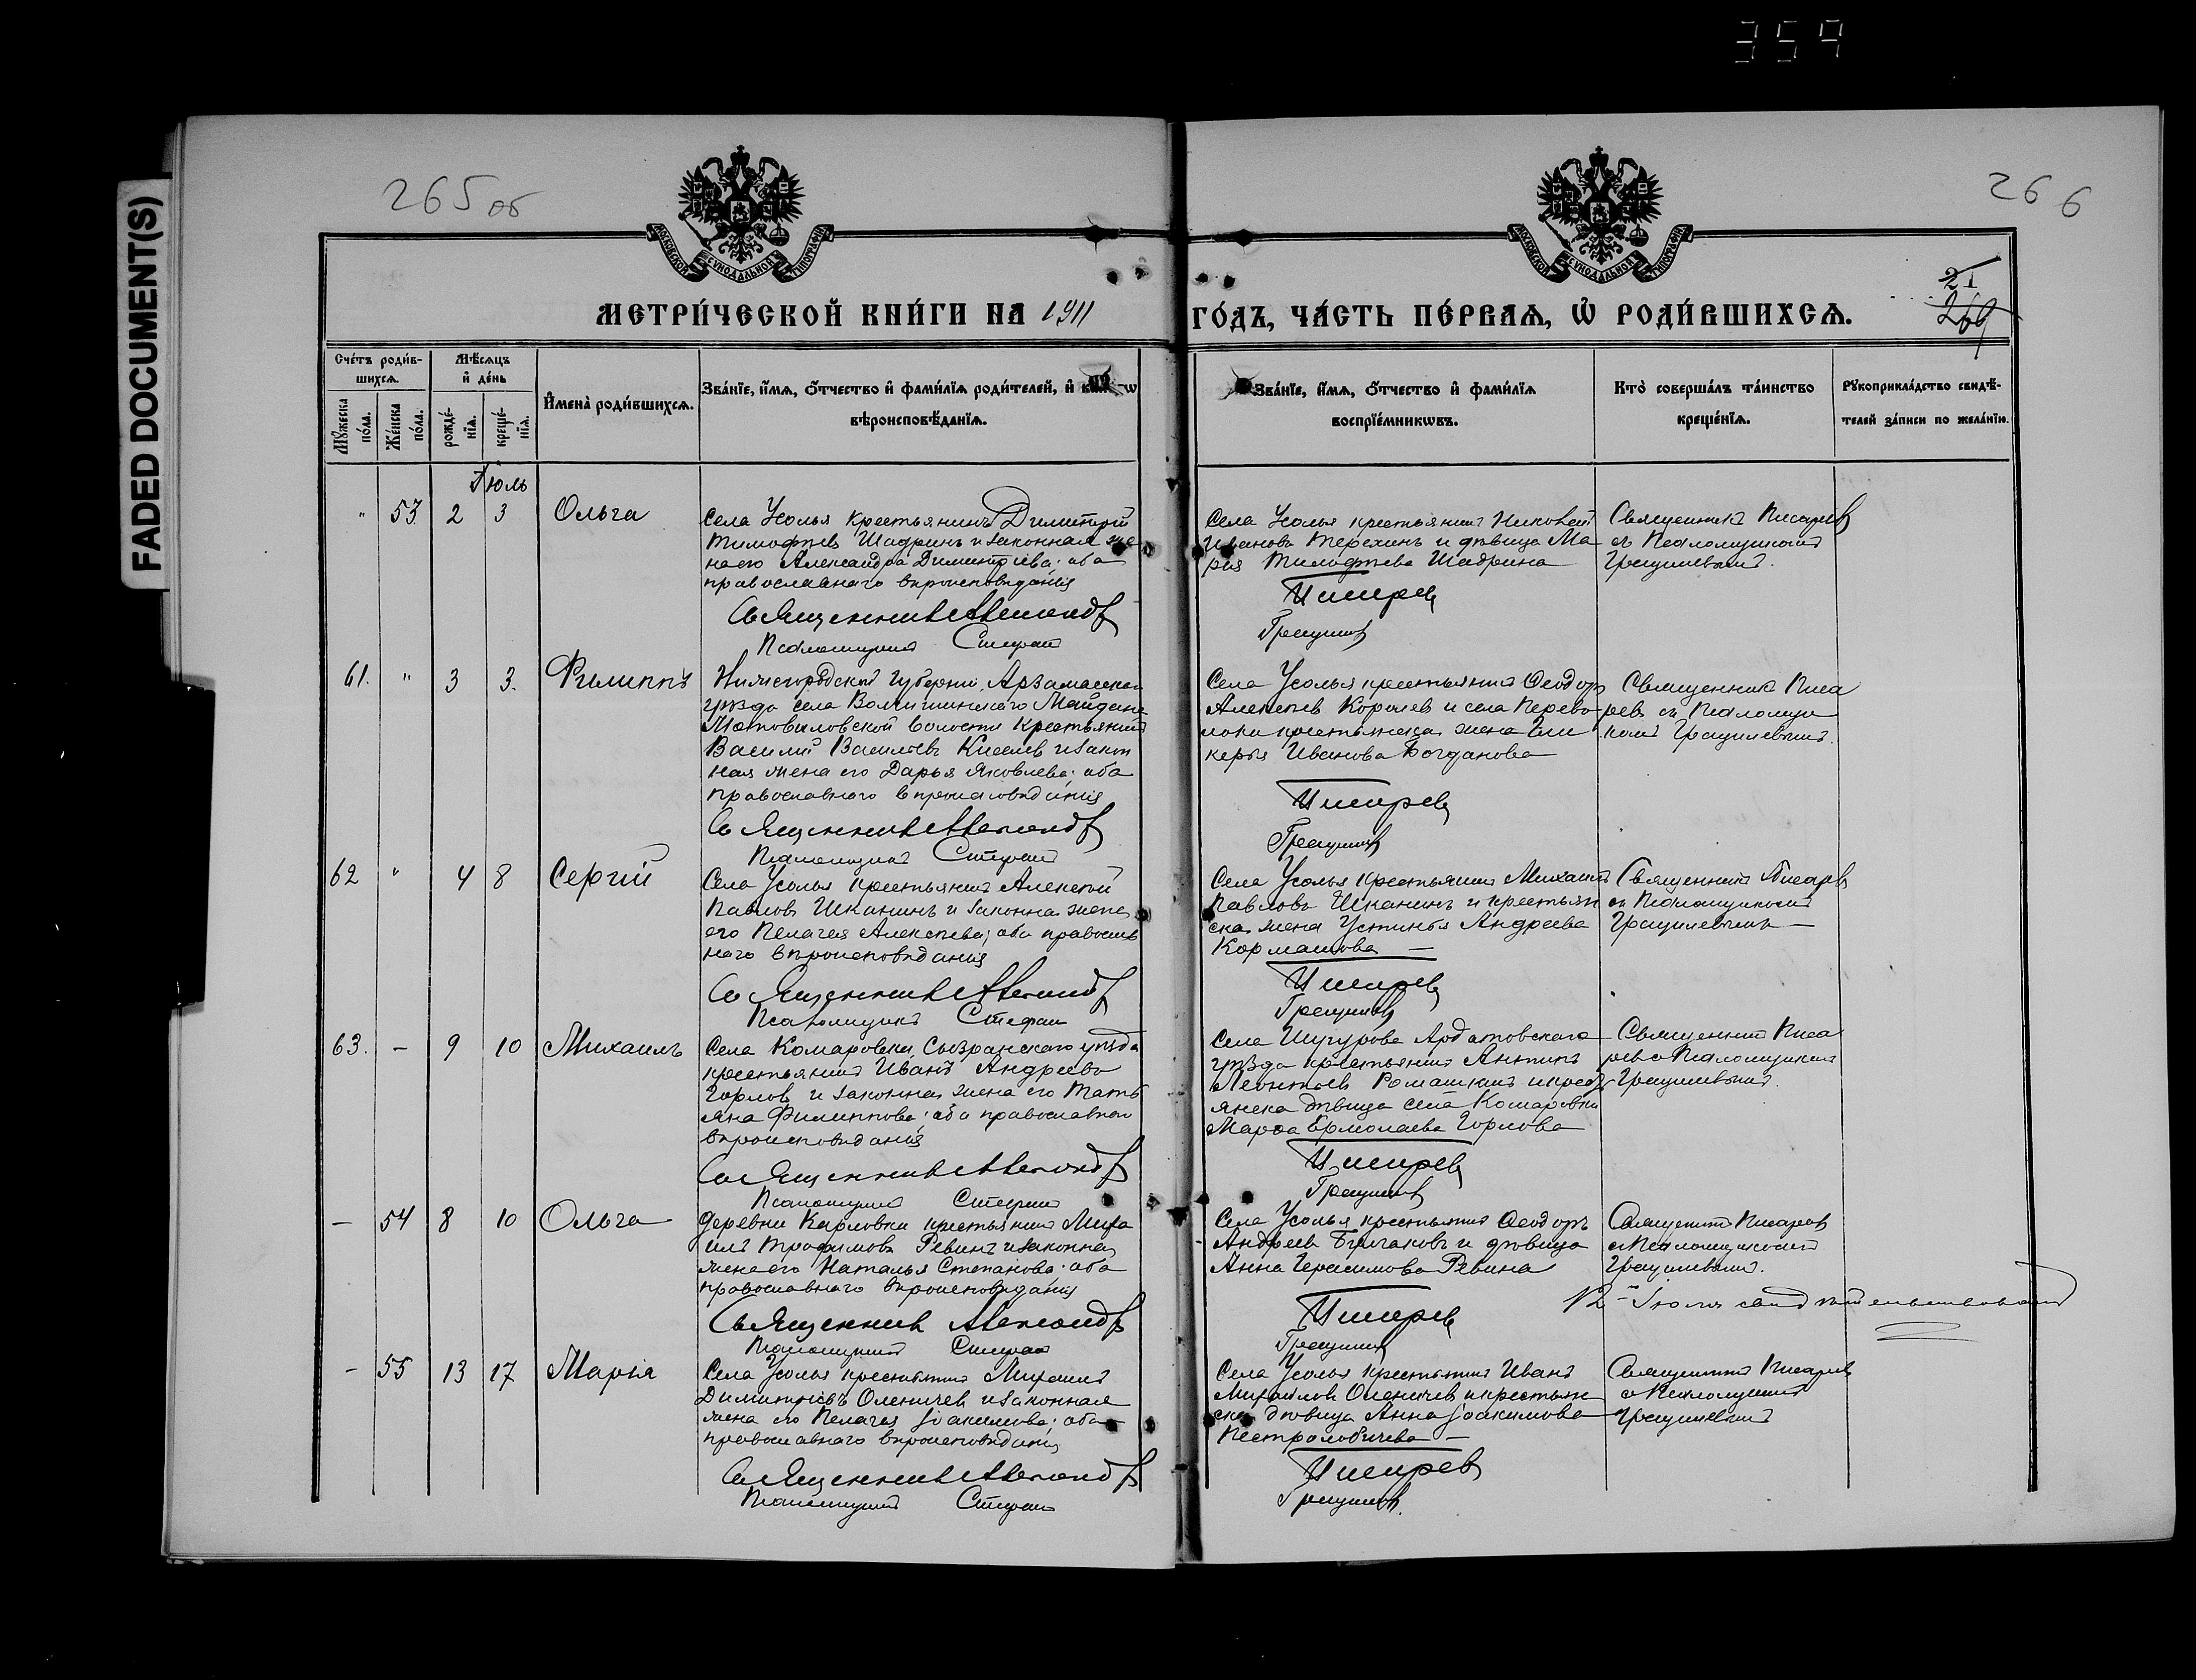 359
FADED DOCUMENT(S)
265 об
266
МОСКОВСКОЙ СУНОДАЛЬНОЙ ТИПОГРАФІИ
МОСКОВСКОЙ СУНОДАЛЬНОЙ ТИПОГРАФІИ
21
269
МЕТРИ́ЧЕСКОЙ КНИ́ГИ НА 1911
ГО́ДЪ, ЧА́СТЬ ПЕ́РВАѦ, Ѡ҆ РОДИ́ВШИХСѦ.
Сче́тъ роди́в-
шихсѧ.
Мꙋ́жеска по́ла.
Же́нска по́ла.
Мѣ́сѧцъ
и҆ де́нь
рожде́-
нїѧ.
креще́-
нїѧ.
И҆мена̀ роди́вшихсѧ.
Зва́нїе, и҆́мѧ, ѻ҆́тчество и҆ фами́лїѧ роди́телей, и҆
вѣроисповѣ́данїѧ.
Зва́нїе, и҆́мѧ, ѻ҆́тчество и҆ фами́лїѧ
воспрїе́мникѡвъ.
Кто̀ соверша́лъ та́инство
креще́нїѧ.
Рꙋкоприкла́дство свидѣ́-
телей за́писи по жела́нїю.
Іюль
" 53 2 3 Ольга
Села Усолья крестьянинъ Димитрій
Тимофѣевъ Шадринъ и законная же
на его Александра Димитріева; оба
православнаго вѣроисповѣданія
Священникъ
Псаломщикъ Стефан
Села Усолья крестьянинъ
Иванова Терехинъ и дѣвица Ма
рія Тимофѣева Шадрина
Писарев
Грацилев
Священникъ Писарев
съ Псаломщикомъ
Грацилевымъ.
61. " 3 3. Филиппъ
Нижегородской губерніи, Арзамасскаго
уѣзда села Майдана
Мотовиловской волости крестьянинъ
Василій Васильевъ Киселев и закон
ная жена его Дарья Яковлева; оба
православнаго вѣроисповѣданія
Священникъ
Псаломщикъ Стефан
Села Усолья крестьянинъ Ѳеодор
Алексѣев Королев и села Перево
локи крестьянска жена Гли
керья Иванова Богданова
Писарев
Грацилев
Священник Писа
рев съ Псаломщи
комъ Грацилевымъ.
62 " 4 8 Сергій
Села Усолья крестьянинъ Алексѣй
Павловъ Шканинъ и законна жена
его Пелагея Алексѣева; оба православ
наго вѣроисповѣданія
Священникъ
Псаломщикъ Стефан
Села Усолья крестьянинъ Михаилъ
Павловъ Шканинъ и крестьян
ска жена Устинья Андреева
Кормашова —
Писарев
Грацилев
Священникъ Писарев
съ Псаломщикомъ
Грацилевымъ —
63. — 9 10 Михаилъ
Села Комаровки, Сызранскаго уѣзда
крестьянинъ Иванъ Андреева
Горловъ и законная жена его Тать
яна Филиппова; оба православнаго
вѣроисповѣданія
Священникъ
Псаломщикъ Стефан
Села Шугурова Ардатовскаго
уѣзда крестьянинъ Антипъ
Леонтьевъ Ромашкинъ и крест
янска дѣвица села Комаровки
Марѳа Ермолаева Горлова
Писарев
Грацилев
Священникъ Писа
рев с Псаломщикомъ
Грацилевымъ.
— 54 8 10 Ольга
Деревни Карловки крестьянинъ Миха
илъ Трофимовъ Ревинъ и законная
жена его Наталья Степанова; оба
православнаго вѣроисповѣданія
Священник
Псаломщикъ Стефан
Села Усолья крестьянинъ Ѳеодоръ
Андреев и дѣвица
Анна Герасимова Ревина
Писарев
Грацилев
Священникъ Писарев
съ Псаломщикомъ
Грацилевымъ.
12 Іюля
— 55 13 17 Марія
Села Усолья крестьянинъ Михаилъ
Димитріевъ Оленичев и законная
жена его Пелагея Іоакимова; оба
православнаго вѣроисповѣданія
Священникъ
Псаломщикъ Стефан
Села Усолья крестьянинъ Иванъ
Михайловъ Оленичев и крестьян
ска дѣвица Анна Іоакимова
—
Писарев
Грацилев.
Священникъ Писарев
с Псаломщикомъ
Грацилевымъ